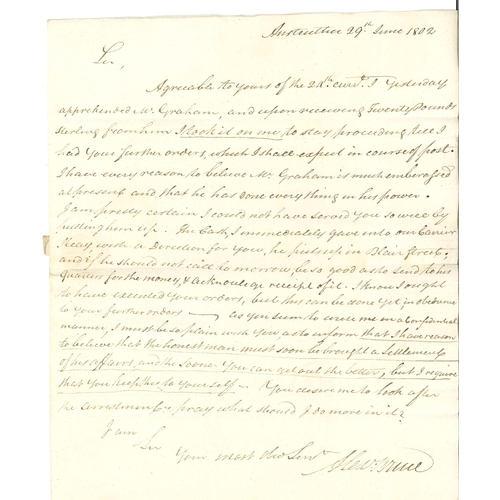 Anstruther 29th June 1802
Sir,
Agreeable to yours of the 24th curt. I Yesterday
apprehended Mr. Graham, and upon receiving Twenty Pounds
sterling from him I took it on me to stay proceeding till I
had Your further orders, which I shall expect in course of post.
I have every reason to believe Mr. Graham is much embarrassed
at present and that he has done every thing in his power.
I am pretty certain I could not have served you so well by
putting him up. The Cash, I immediately gave into our Carrier
Keay, with a Direction for You, he puts up in Blair Street,
and if he should not call to morrow, be so good as to send to his
Quarters for the money, & acknowledge receipt of it. I know I ought
to have executed Your orders, but this can be done yet, in obedience
to your further orders — as you seem to write me in a Confidential
manner, I must be so plain with You, as to inform that I have reason
to believe that the honest man must soon be brought a Settlement
of his affairs, and the sooner You can get out the better, but I require
that You keep this to yourself — You desire me to look after
the arrestment & pray what should I do more in it?
I am
Sir
Your most obed Servt
Alexr.